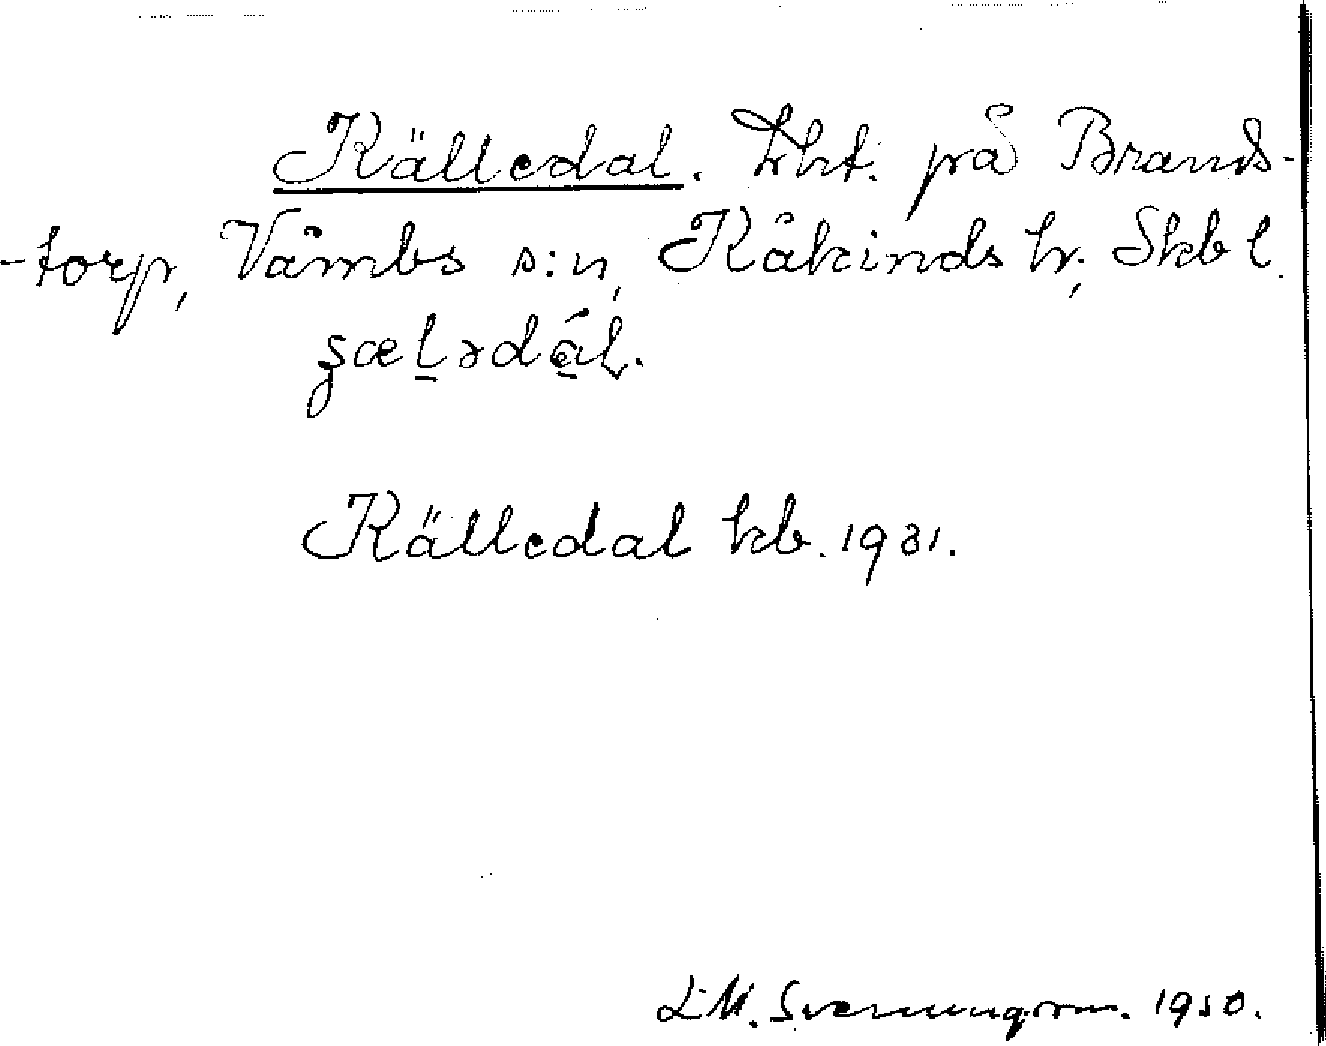 Källedal. Lht. på Brands-
-torp, Våmbs s:n, Kåkinds hr, Skb l.
ʂæl̠ədál.
Källedal kb. 1931.
L.M. Svennungsson. 1930.